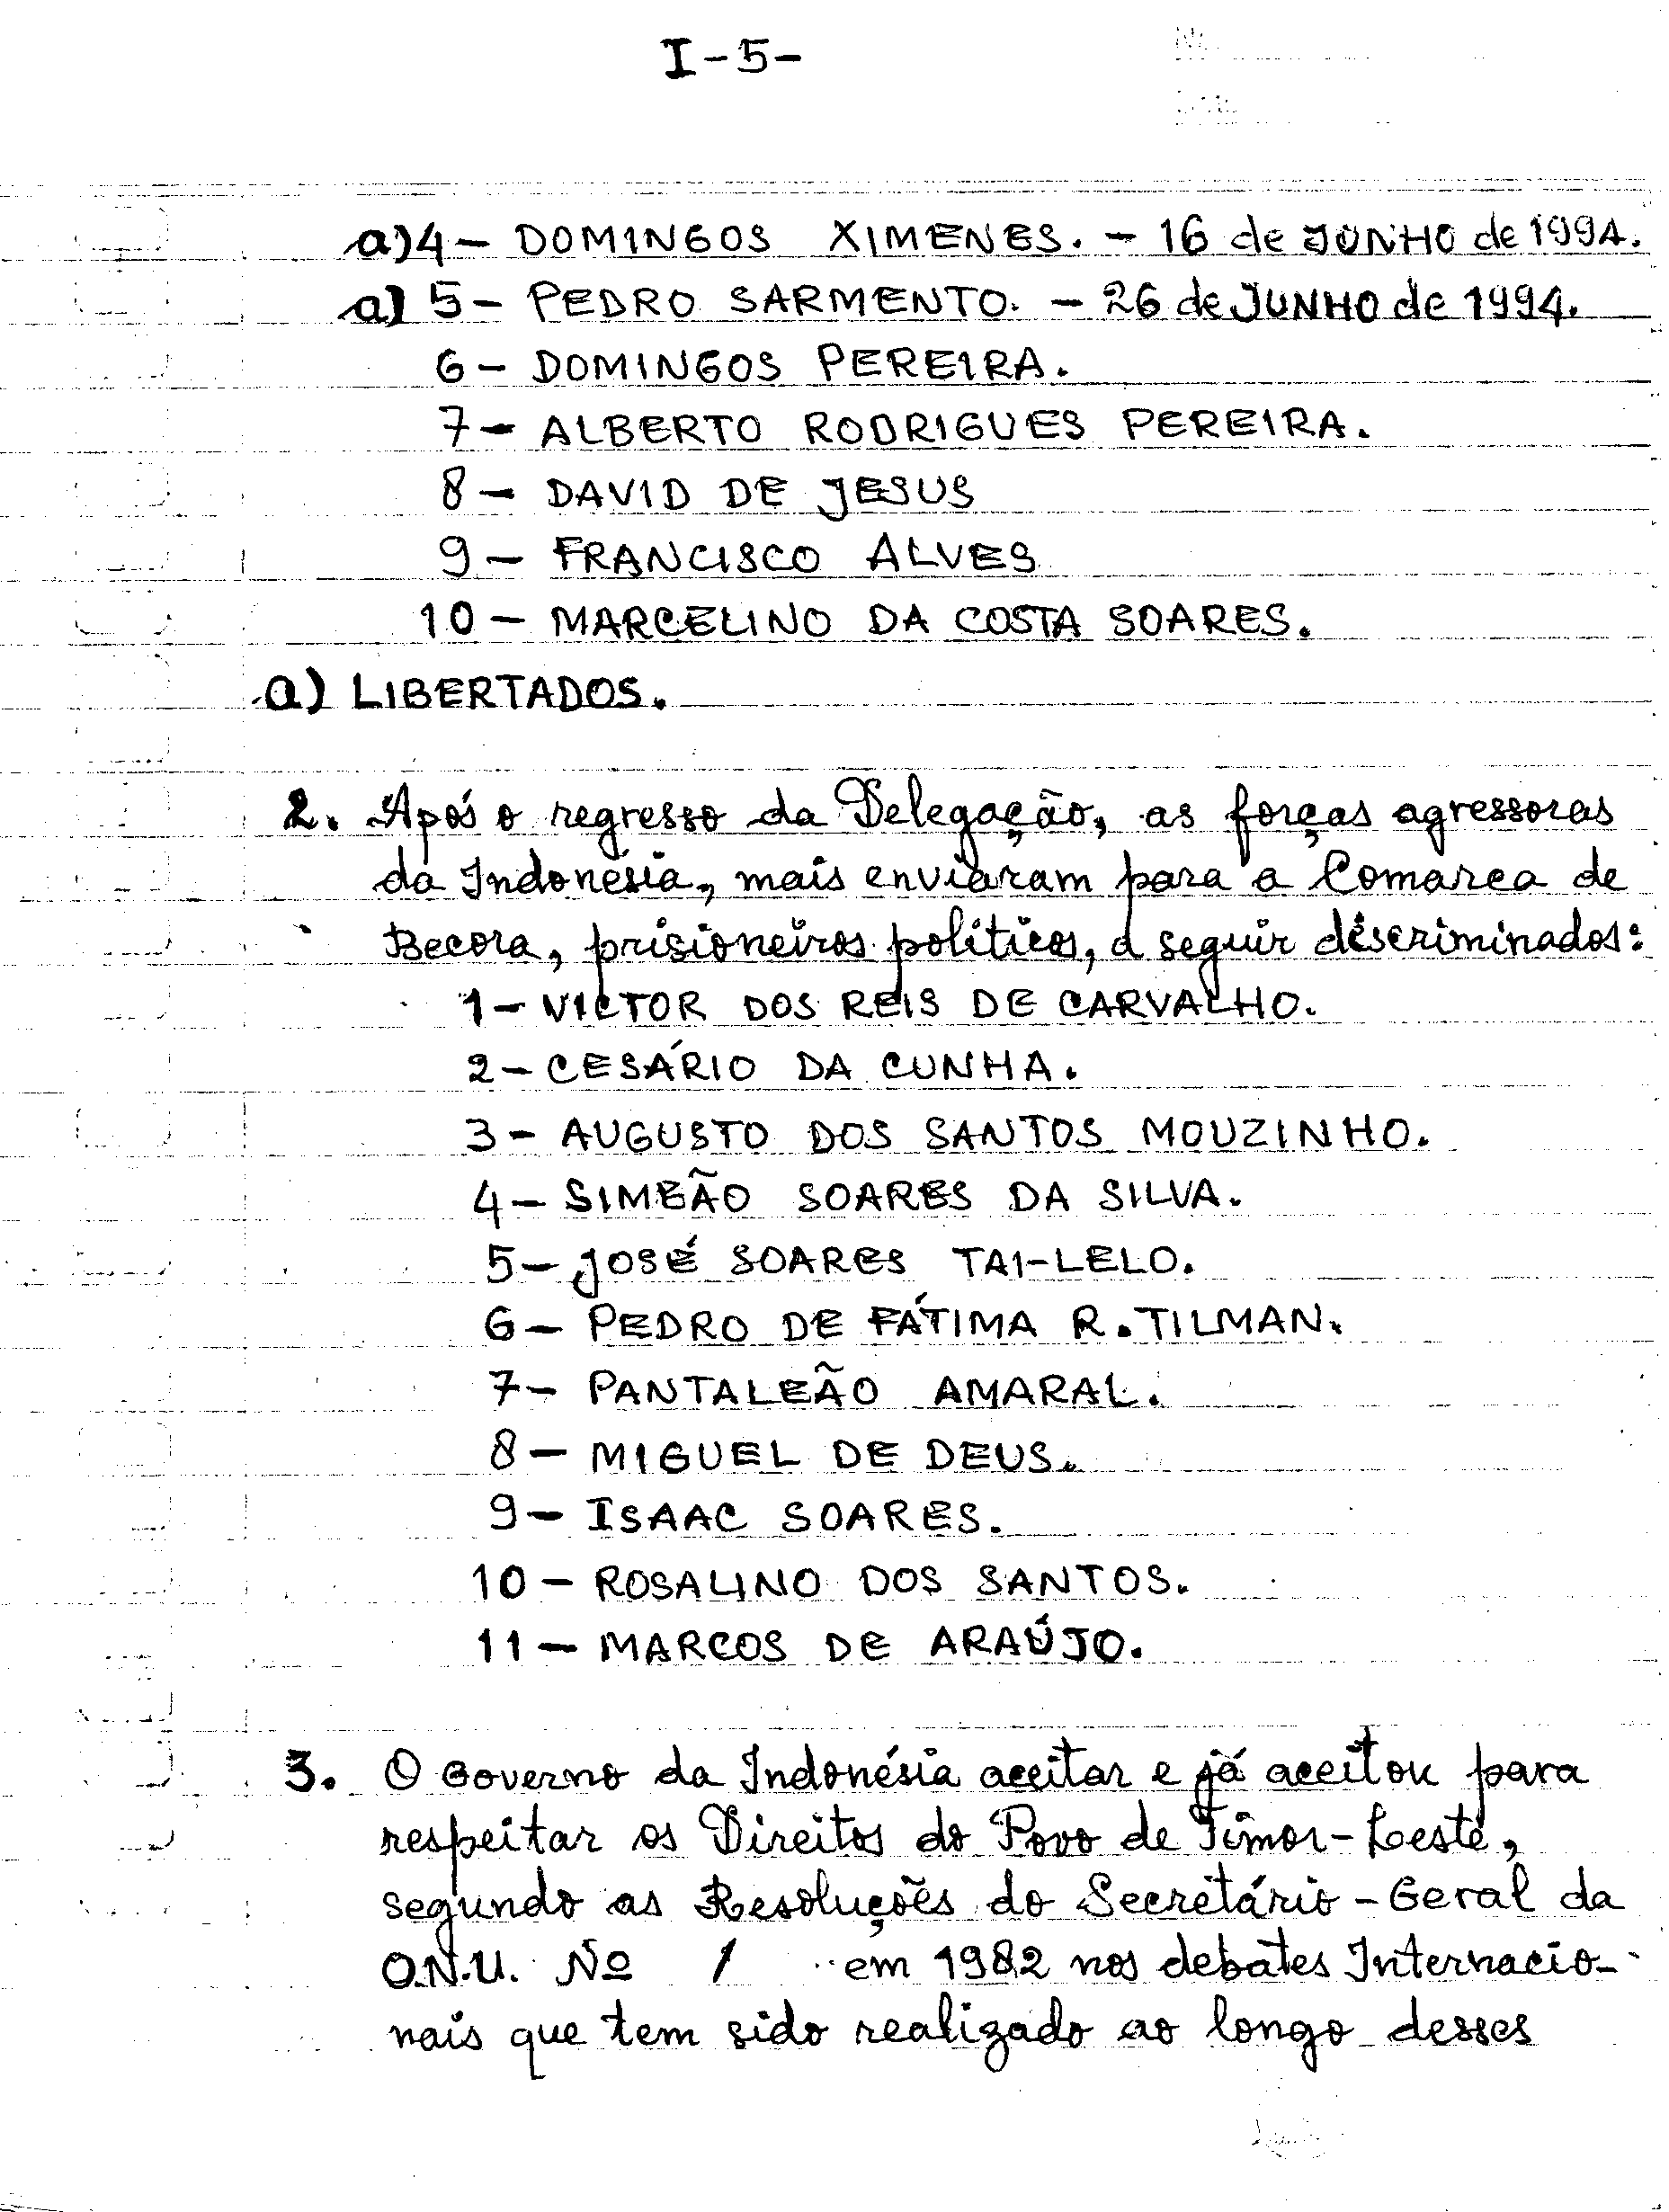 I-5-
a) 4 - DOMINGOS XIMENES. - 16 de JUNHO de 1994.
a) 5 - PEDRO SARMENTO. - 26 de JUNHO de 1994.
6 - DOMINGOS PEREIRA.
7 - ALBERTO RODRIGUES PEREIRA.
8 - DAVID DE JESUS
9 - FRANCISCO ALVES
10 - MARCELINO DA COSTA SOARES.
a) LIBERTADOS.
2. Após o regresso da Delegação, as forças agressoras
da Indonésia, mais enviaram para a Comarca de
Becora, prisioneiros políticos, a seguir discriminados:
1 - VICTOR DOS REIS DE CARVALHO.
2 - CESÁRIO DA CUNHA.
3 - AUGUSTO DOS SANTOS MOUZINHO.
4 - SIMEÃO SOARES DA SILVA.
5 - JOSÉ SOARES TAI-LELO.
6 - PEDRO DE FÁTIMA R. TILMAN.
7 - PANTALEÃO AMARAL.
8 - MIGUEL DE DEUS.
9 - ISAAC SOARES.
10 - ROSALINO DOS SANTOS.
11 - MARCOS DE ARAÚJO.
3. O Governo da Indonésia aceitar e já aceitou para
respeitar os Direitos do Povo de Timor-Leste,
segundo as Resoluções do Secretário-Geral da
O.N.U. Nº / em 1982 nos debates Internacio-
nais que tem sido realizado ao longo desses